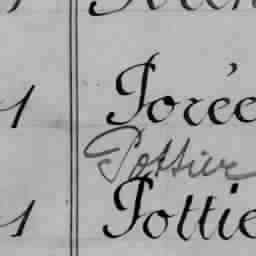 1 Porée
Pottier
1 Pottie